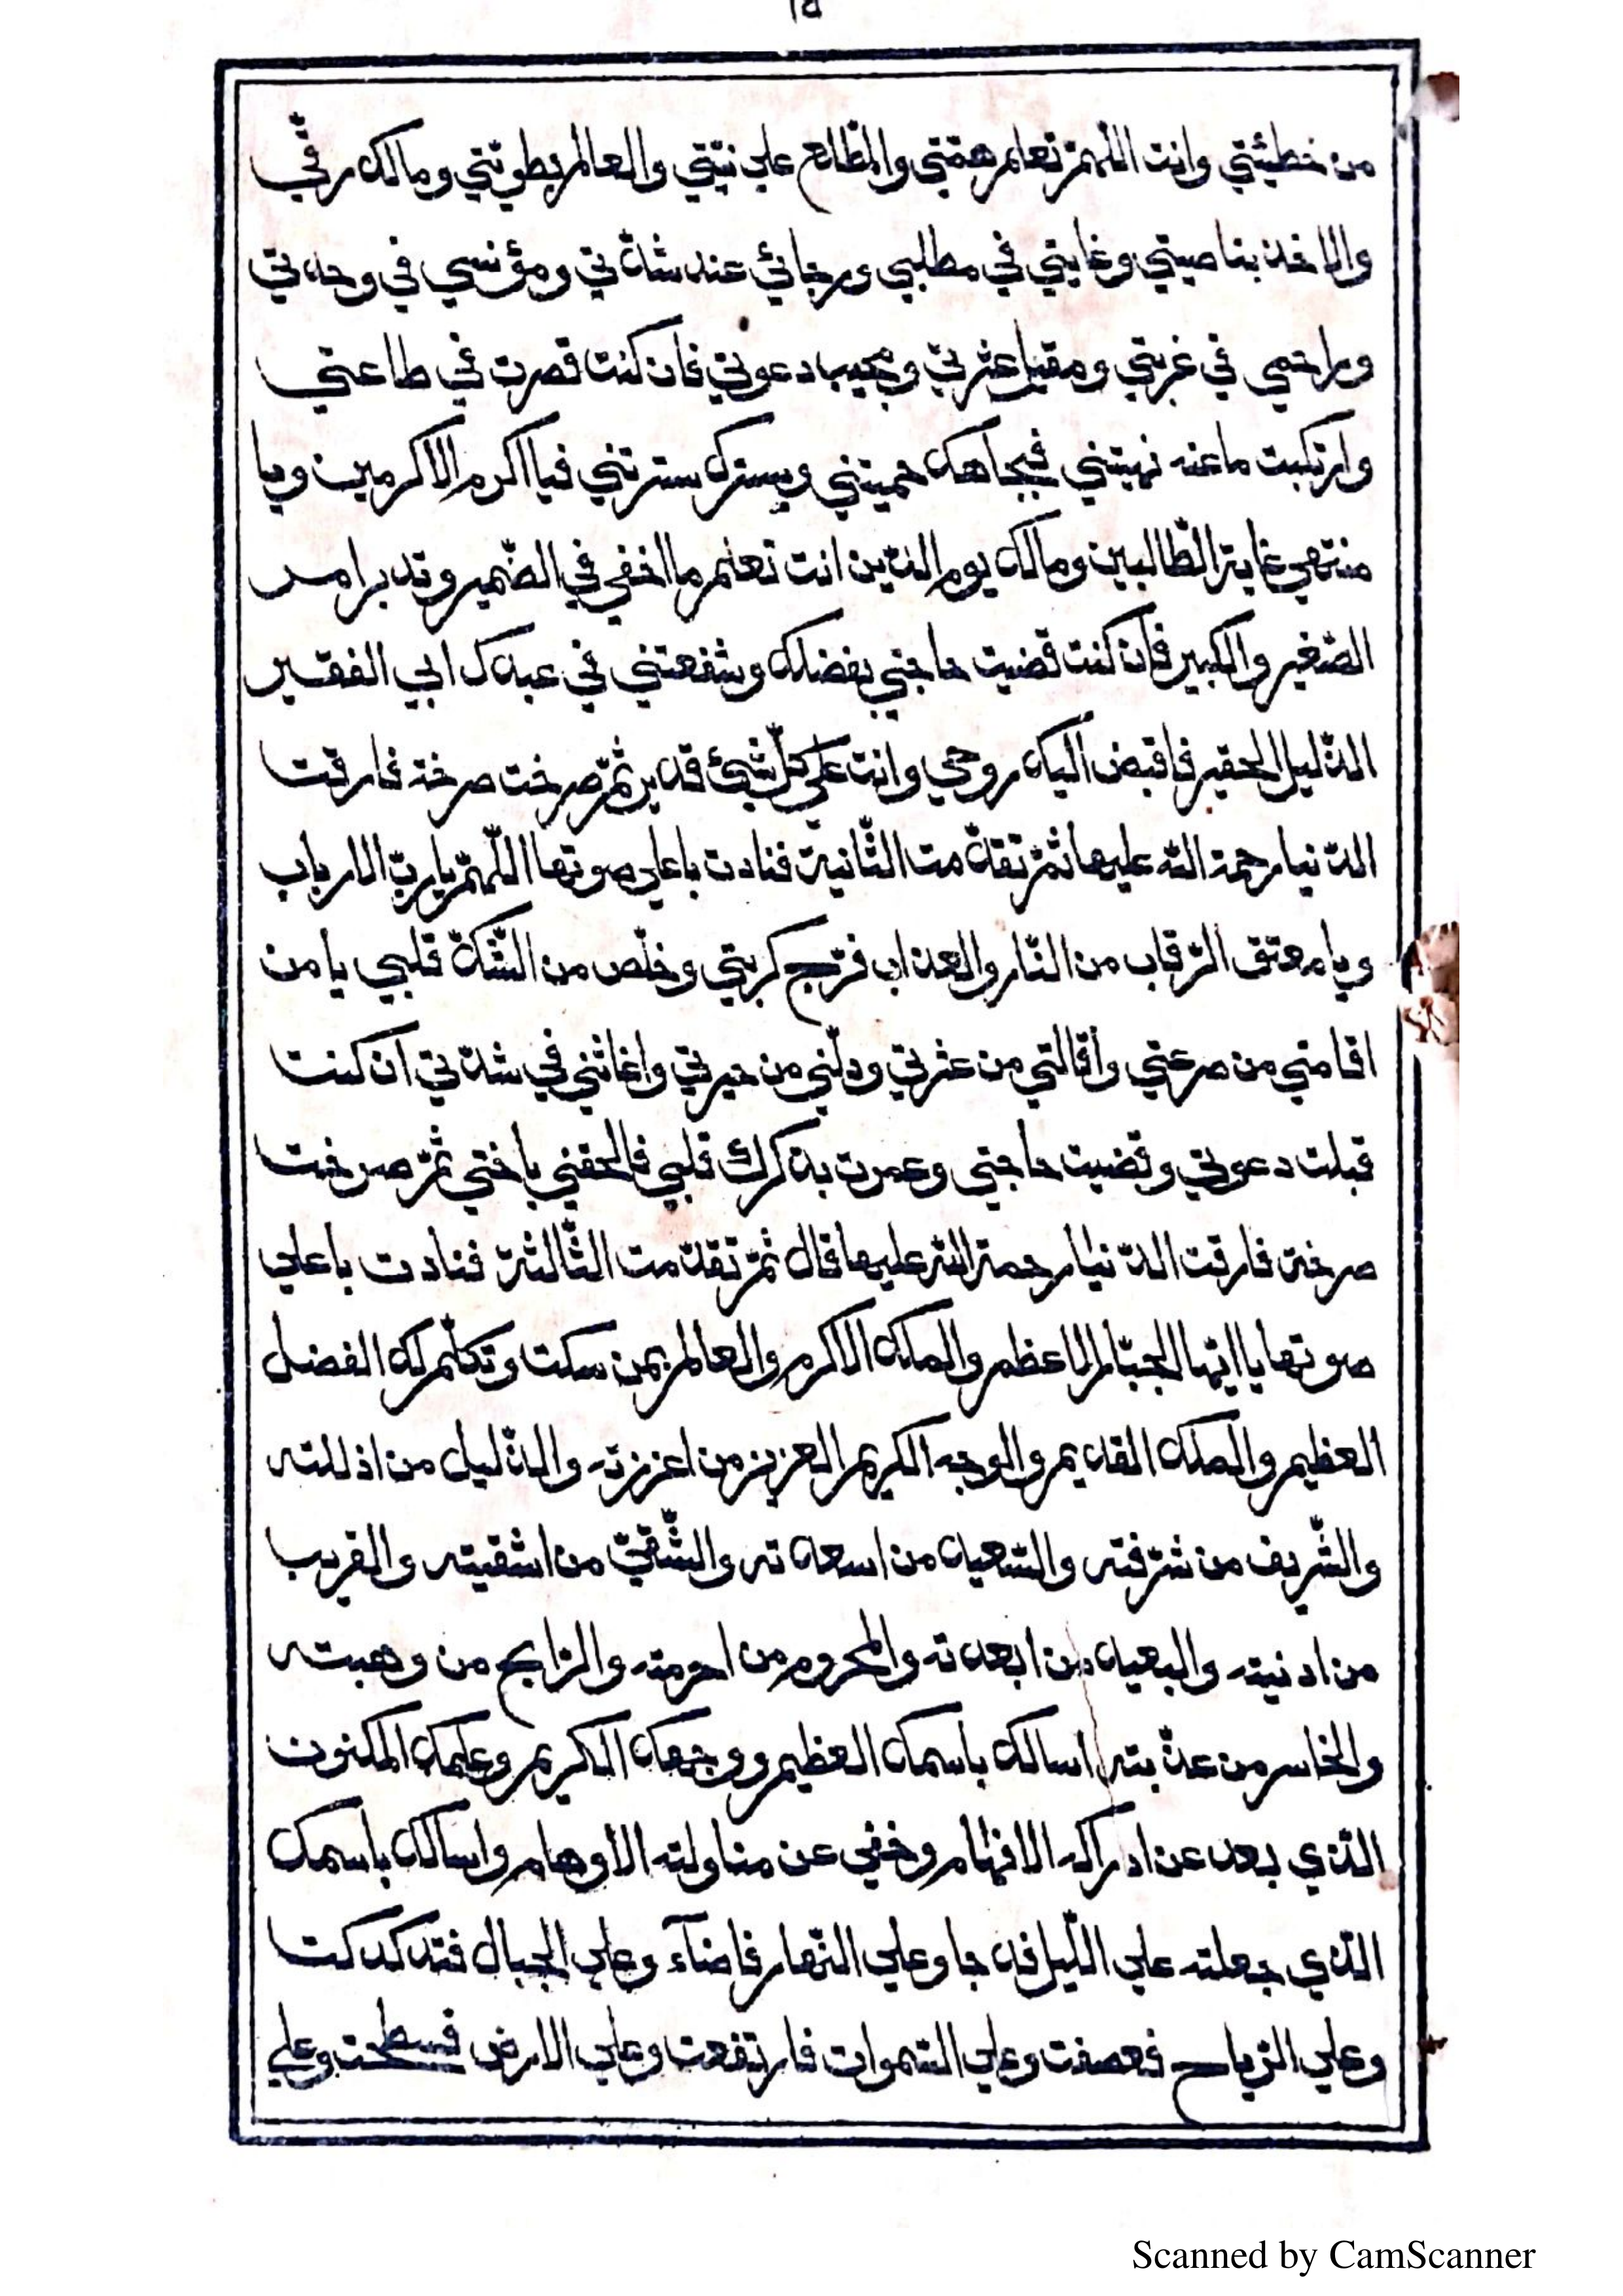 من خطيئتي وانت اللّهمّ تعلم همّتي والمطّلع علي نيّتي والعالم بطويّتي ومالك رقّي
والاخذ بناصيتي وغايتي في مطلبي ورجائي عند شدّتي ومؤنسي في وحدتي
وراحمي في غربتي ومقيل عثرتي ومجيب دعوتي فان كنت قصرت في طاعتي
وارتكبت ما عنه نهيتني فبجاهك حميتني وبسترك سترتني فيا اكرم الاكرمين ويا
منتهي غاية الطّالبين ومالك يوم الدّين انت تعلم ما اخفي في الضّمير وتدبر امر
الصّغير والكبير فان كنت قضيت حاجتي بفضلك وشفعتني في عبدك ابي الفقير
الذّليل الحقير فاقبض اليك روحي وانت علي كلّ شيئ قدير ثمّ صرخت صرخة فارقت
الدّنيا رحمة الله عليها ثمّ تقدّمت الثّانية فنادت باعلي صوتها اللّهمّ يا ربّ الارباب
ويا معتق الرّقاب من النّار والعذاب فرّج كربتي وخلّص من الشّكّ قلبي يا من
اقامتي من صرعتي واقالتي من عثرتي ودلّني من حيرتي واغاثني في شدّتي ان كنت
قبلت دعوتي وقضيت حاجتي وعمرت بذكرك قلبي فالحقني باختي ثمّ صرخت
صرخة فارقت الدّنيا رحمة الله عليها قال ثمّ تقدّمت الثّالثة فنادت باعلي
صوتها يا ايّها الجبّار الاعظم والملك الاكرم والعالم بمن سكت وتكلّم لك الفضل
العظيم والملك القديم والوجه الكريم العزيز من اعززته والذّليل من اذللته
والشّريف من شرّفته والسّعيد من اسعدته والشّقيّ من اشقيته والقريب
من ادنيته والبعيد من ابعدته والمحروم من احرمته والرّابح من وهبته
والخاسر من عذّبته اسالك باسمك العظيم ووجهك الكريم وعلمك المكنون
الّذي بعد عن ادراكه الافهام وخفي عن مناولته الاوهام واسالك باسمك
الّذي جعلته علي اللّيل فدجا وعلي النّهار فاضآء وعلي الجبال فتدكدكت
وعلي الرّياح فعصفت وعلي السّموات فارتفعت وعلي الارض فسطحت وعلي
Scanned by CamScanner